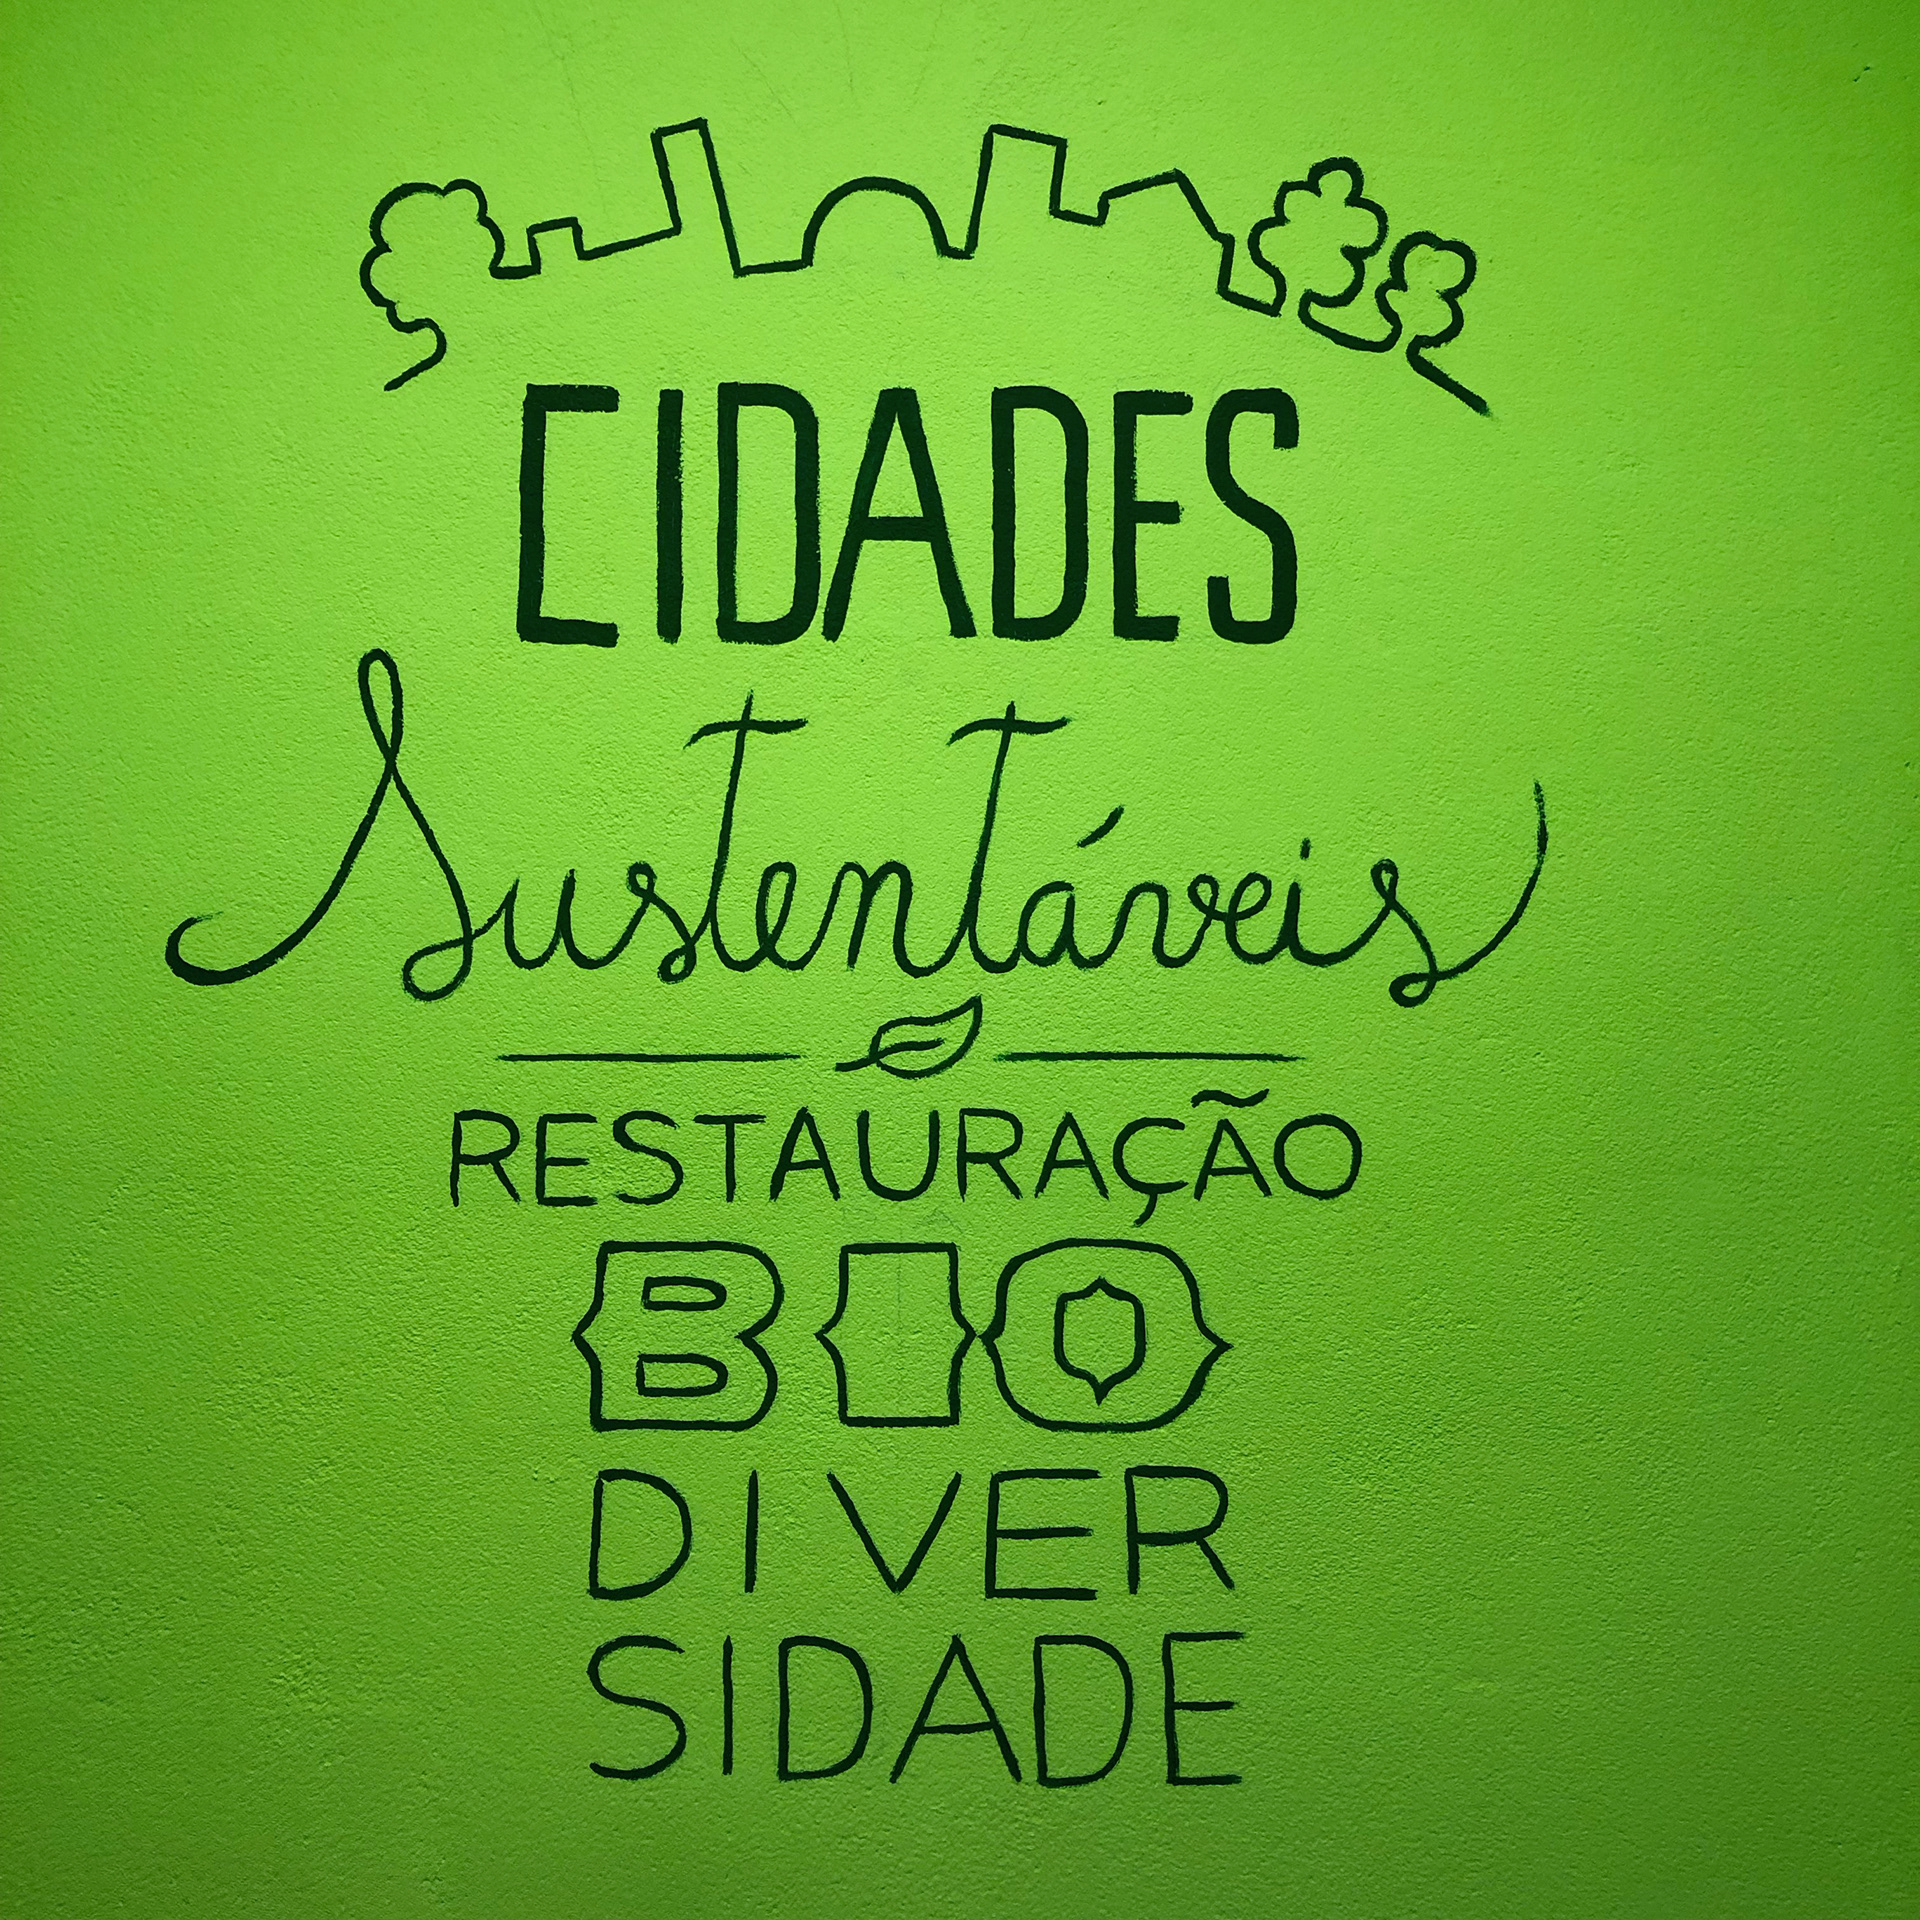 CIDADES
Sustentáveis
RESTAURAÇÃO
BIO
DIVER
SIDADE